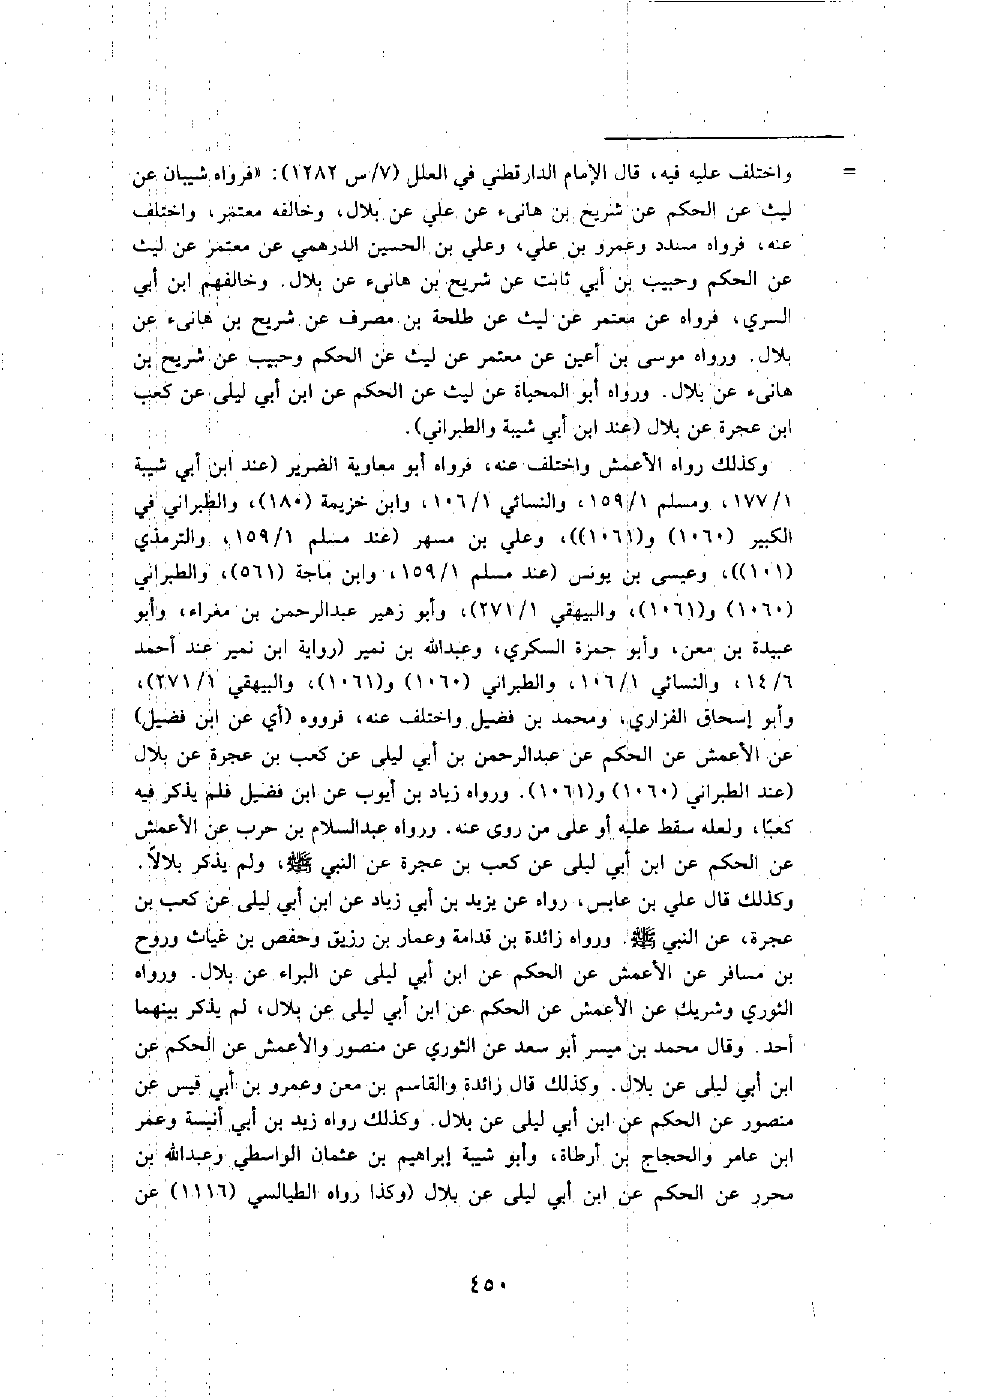 = واختلف عليه فيه، قال الإمام الدارقطني في العلل (٧/س ١٢٨٢): «فرواه شيبان عن
ليث عن الحكم عن شريح بن هانىء عن علي عن بلال، وخالفه معتمر، واختلف
عنه، فرواه مسدد وعمرو بن علي، وعلي بن الحسين الدرهمي عن معتمر عن ليث
عن الحكم وحبيب بن أبي ثابت عن شريح بن هانىء عن بلال. وخالفهم ابن أبي
السري، فرواه عن معتمر عن ليث عن طلحة بن مصرف عن شريح بن هانىء عن
بلال. ورواه موسى بن أعين عن معتمر عن ليث عن الحكم وحبيب عن شريح بن
هانىء عن بلال. ورواه أبو المحياة عن ليث عن الحكم عن ابن أبي ليلى عن كعب
ابن عجرة عن بلال (عند ابن أبي شيبة والطبراني).
وكذلك رواه الأعمش واختلف عنه، فرواه أبو معاوية الضرير (عند ابن أبي شيبة
١/١٧٧، ومسلم ١/١٥٩، والنسائي ١/١٠٦، وابن خزيمة (١٨٠)، والطبراني في
الكبير (١٠٦٠) و(١٠٦١))، وعلي بن مسهر (عند مسلم ١/١٥٩، والترمذي
(١٠١))، وعيسى بن يونس (عند مسلم ١/١٥٩، وابن ماجة (٥٦١)، والطبراني
(١٠٦٠) و(١٠٦١)، والبيهقي ١/٢٧١)، وأبو زهير عبدالرحمن بن مغراء، وأبو
عبيدة بن معن، وأبو حمزة السكري، وعبدالله بن نمير (رواية ابن نمير عند أحمد
٦/١٤، والنسائي ١/١٠٦، والطبراني (١٠٦٠) و(١٠٦١)، والبيهقي ١/٢٧١)،
وأبو إسحاق الفزاري، ومحمد بن فضيل واختلف عنه، فرووه (أي عن ابن فضيل)
عن الأعمش عن الحكم عن عبدالرحمن بن أبي ليلى عن كعب بن عجرة عن بلال
(عند الطبراني (١٠٦٠) و(١٠٦١). ورواه زياد بن أيوب عن ابن فضيل فلم يذكر فيه
كعبًا، ولعله سقط عليه أو على من روى عنه. ورواه عبدالسلام بن حرب عن الأعمش
عن الحكم عن ابن أبي ليلى عن كعب بن عجرة عن النبي ﷺ، ولم يذكر بلالاً.
وكذلك قال علي بن عابس، رواه عن يزيد بن أبي زياد عن ابن أبي ليلى عن كعب بن
عجرة، عن النبي ﷺ. ورواه زائدة بن قدامة وعمار بن رزيق وحفص بن غياث وروح
بن مسافر عن الأعمش عن الحكم عن ابن أبي ليلى عن البراء عن بلال. ورواه
الثوري وشريك عن الأعمش عن الحكم عن ابن أبي ليلى عن بلال، لم يذكر بينهما
أحد. وقال محمد بن ميسر أبو سعد عن الثوري عن منصور والأعمش عن الحكم عن
ابن أبي ليلى عن بلال. وكذلك قال زائدة والقاسم بن معن وعمرو بن أبي قيس عن
منصور عن الحكم عن ابن أبي ليلى عن بلال. وكذلك رواه زيد بن أبي أنيسة وعمر
ابن عامر والحجاج بن أرطاة، وأبو شيبة إبراهيم بن عثمان الواسطي وعبدالله بن
محرر عن الحكم عن ابن أبي ليلى عن بلال (وكذا رواه الطيالسي (١١١٦) عن
٤٥٠